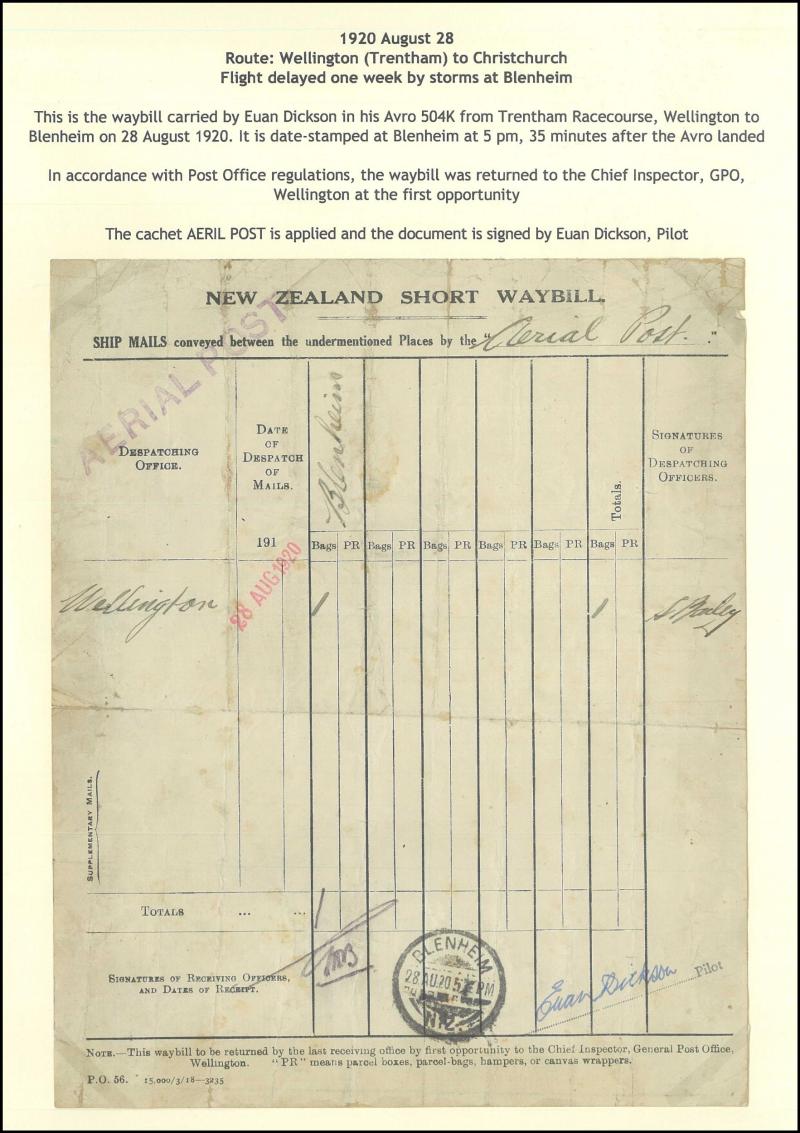 1920 August 28
Route: Wellington (Trentham) to Christchurch
Flight delayed one week by storms at Blenheim
This is the waybill carried by Euan Dickson in his Avro 504K from Trentham Racecourse, Wellington to
Blenheim on 28 August 1920. It is date-stamped at Blenheim at 5 pm, 35 minutes after the Avro landed
In accordance with Post Office regulations, the waybill was returned to the Chief Inspector, GPO,
Wellington at the first opportunity
The cachet AERIL POST is applied and the document is signed by Euan Dickson, Pilot
NEW ZEALAND SHORT WAYBILL.
SHIP MAILS conveyed between the undermentioned Places by the "Aerial Post."
AERIAL POST
DESPATCHING
OFFICE.
DATE
OF
DESPATCH
OF
MAILS.
191
Blenheim
Totals.
SIGNATURES
OF
DESPATCHING
OFFICERS.
Bags PR Bags PR Bags PR Bags PR Bags PR Bags PR
Wellington
28 AUG 1920
1
1
SUPPLEMENTARY MAILS.
TOTALS ... ...
1
SIGNATURES OF RECEIVING OFFICERS,
AND DATES OF RECEIPT.
BLENHEIM
28 AU 20 5 PM
N.Z.
Euan Dickson Pilot
NOTE.—This waybill to be returned by the last receiving office by first opportunity to the Chief Inspector, General Post Office,
Wellington. "PR" means parcel boxes, parcel-bags, hampers, or canvas wrappers.
P.O. 56. 15,000/3/18—3235